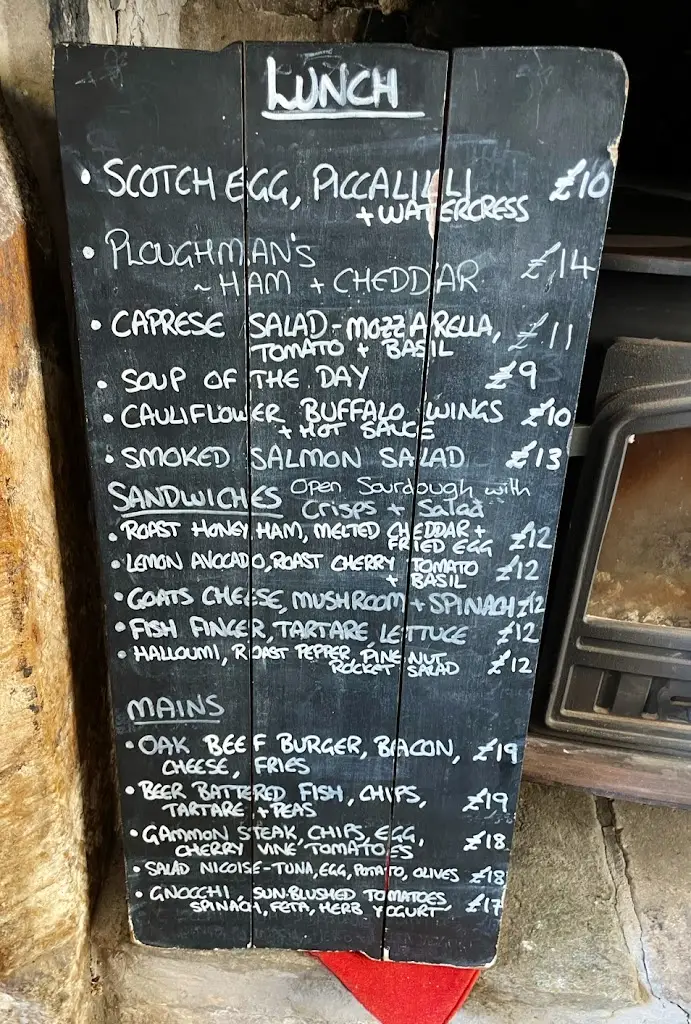 LUNCH
• SCOTCH EGG, PICCALILLI £10
+ WATERCRESS
• PLOUGHMAN'S
~ HAM + CHEDDAR £14
• CAPRESE SALAD - MOZZARELLA, £11
TOMATO + BASIL
• SOUP OF THE DAY £9
• CAULIFLOWER BUFFALO WINGS £10
+ HOT SAUCE
• SMOKED SALMON SALAD £13
SANDWICHES Open Sourdough with
Crisps + Salad
• ROAST HONEY HAM, MELTED CHEDDAR +
FRIED EGG £12
• LEMON AVOCADO, ROAST CHERRY TOMATO £12
+ BASIL
• GOATS CHEESE, MUSHROOM + SPINACH £12
• FISH FINGER, TARTARE LETTUCE £12
• HALLOUMI, ROAST PEPPER, PINE NUT £12
ROCKET SALAD
MAINS
• OAK BEEF BURGER, BACON, £19
CHEESE, FRIES
• BEER BATTERED FISH, CHIPS, £19
TARTARE + PEAS
• GAMMON STEAK, CHIPS, EGG, £18
CHERRY VINE TOMATOES
• SALAD NICOISE - TUNA, EGG, POTATO, OLIVES £18
• GNOCCHI, SUN-BLUSHED TOMATOES £17
SPINACH, FETA, HERB YOGURT